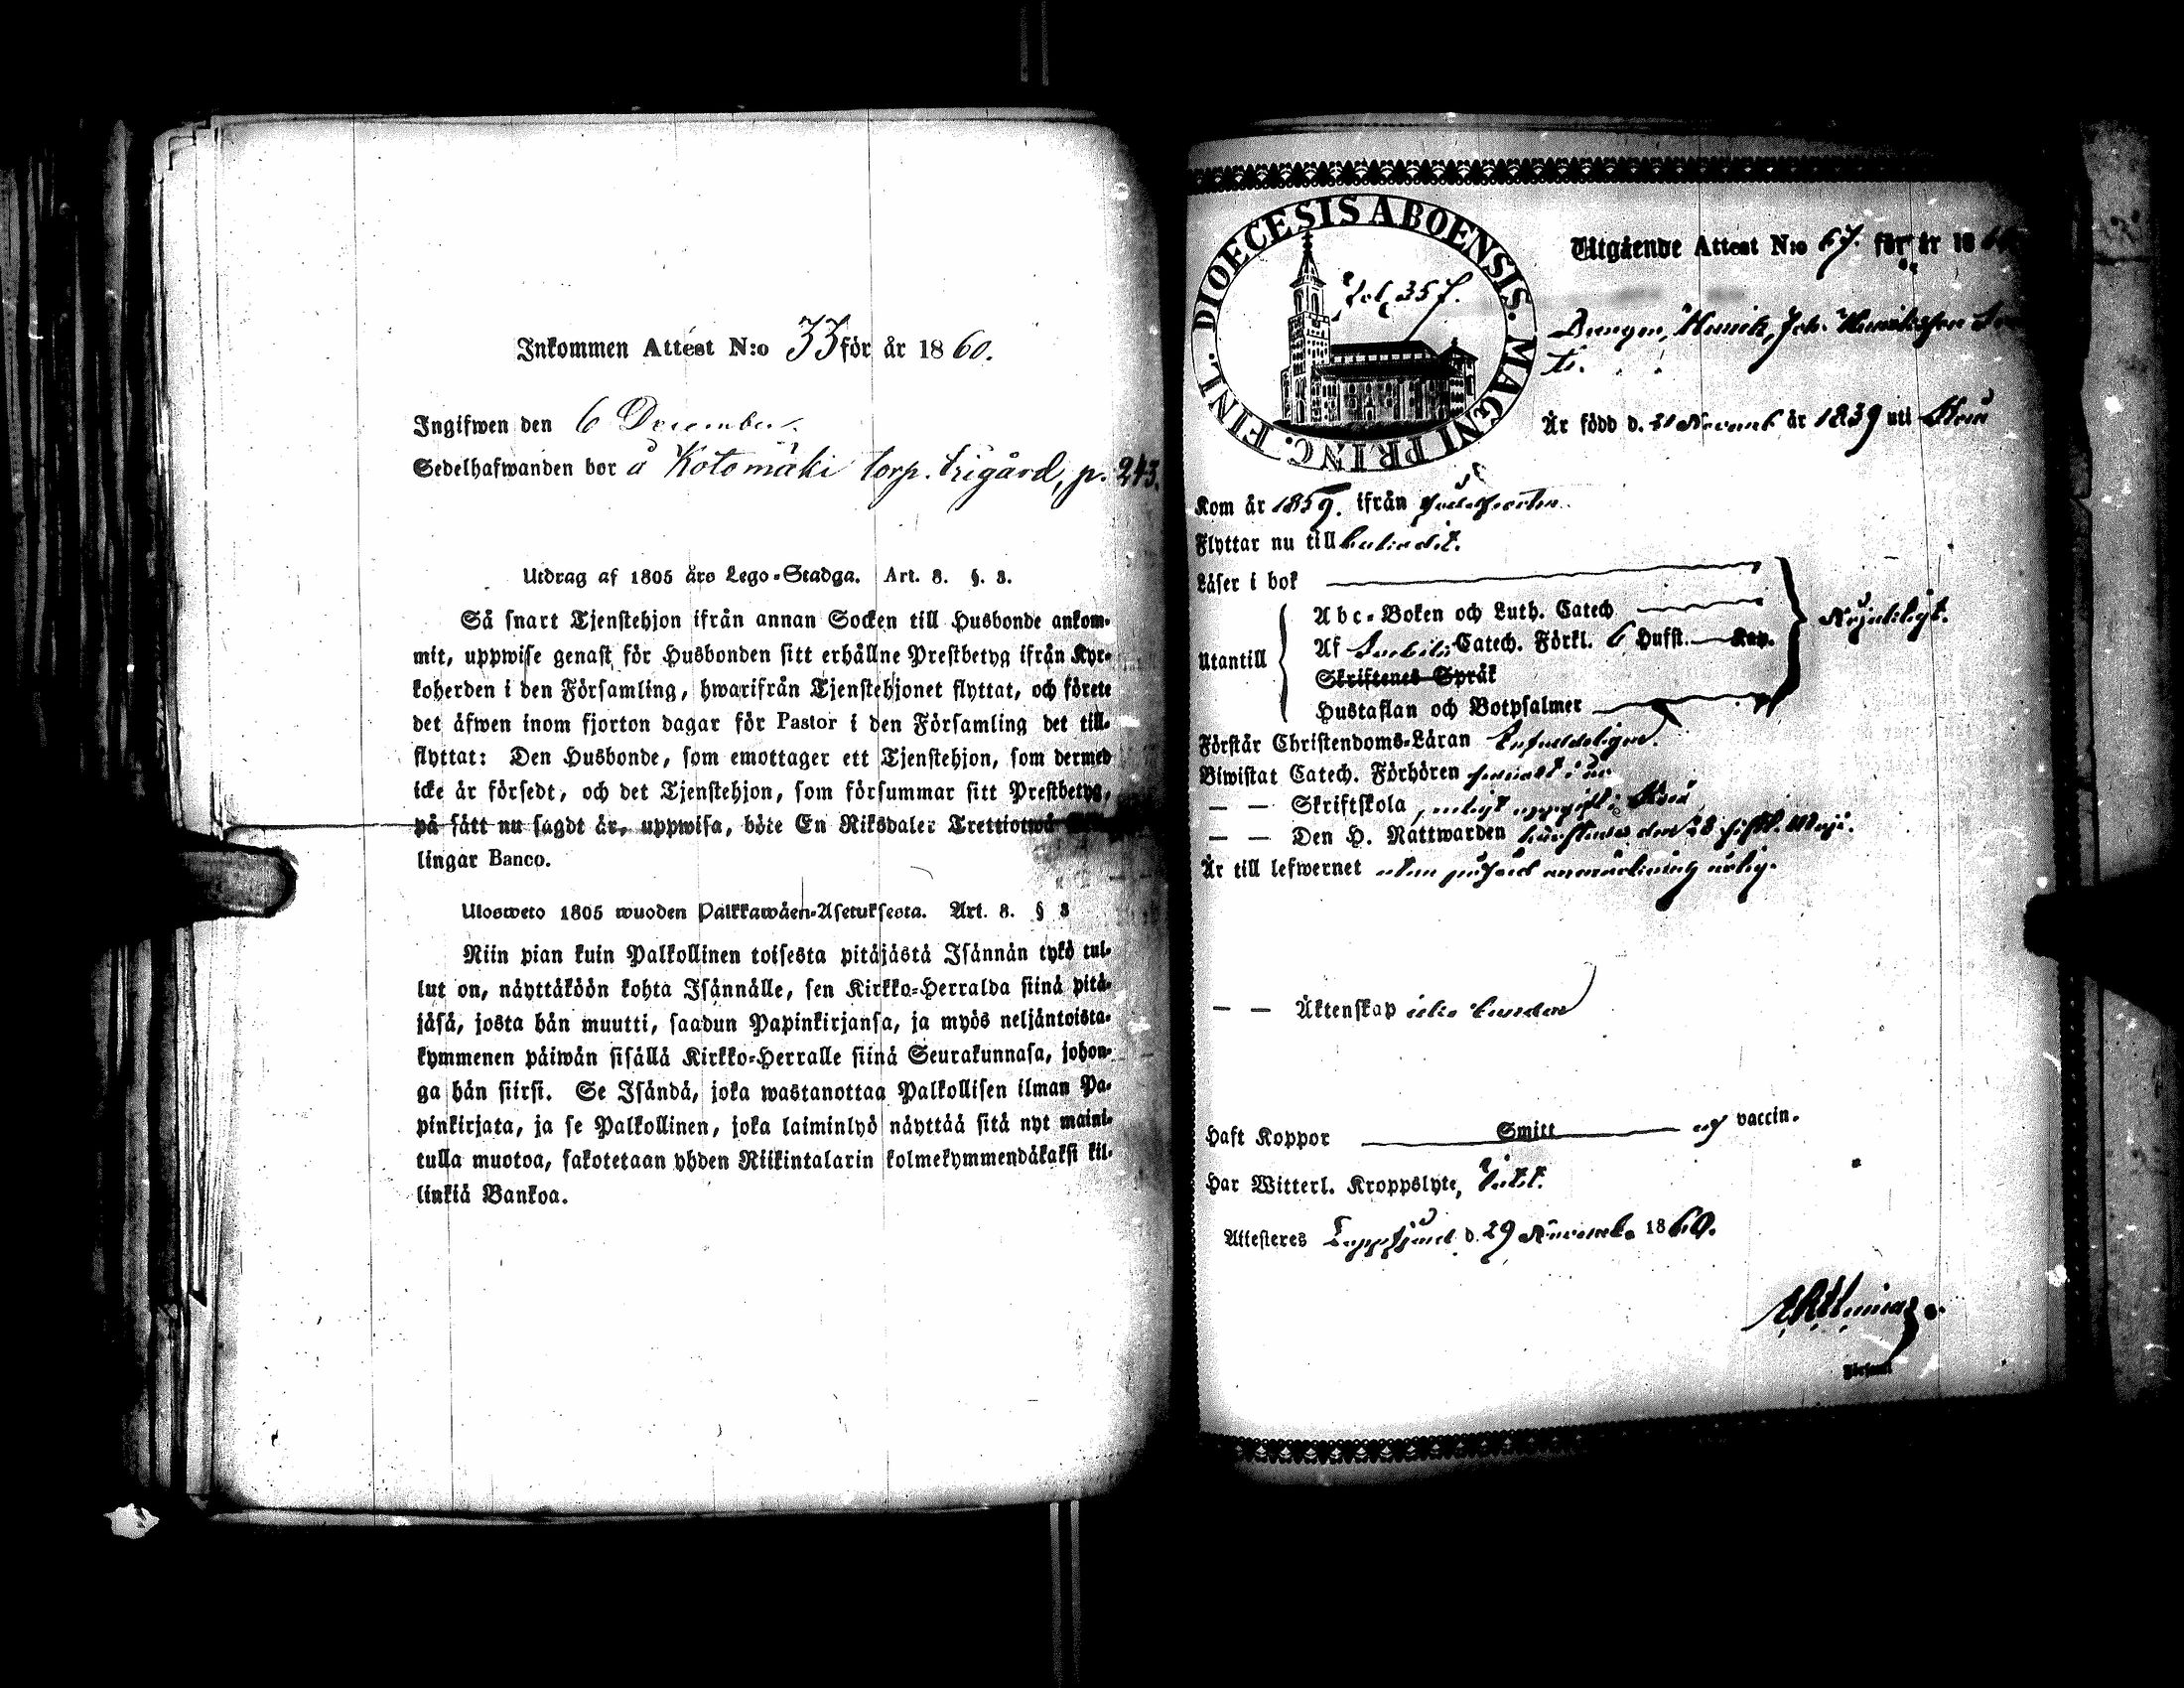 Inkommen Attest N:o 33 för år 1860.
Ingifwen den 6 December.
Sedelhafwanden bor å Kotomäki torp. Frigård, p. 243.
Utdrag af 1805 års Lego-Stadga. Art. 8. §. 8.
Så snart Tjenstehjon ifrån annan Socken till Husbonde ankom-
mit, uppwise genast för Husbonden sitt erhållne Prestbetyg ifrån Kyr-
koherden i den Församling, hwarifrån Tjenstehjonet flyttat, och förete
det äfwen inom fjorton dagar för Pastor i den Församling det till-
flyttat: Den Husbonde, som emottager ett Tjenstehjon, som dermed
icke är försedt, och det Tjenstehjon, som försummar sitt Prestbetyg,
på sätt nu sagdt är, uppwisa, böte En Riksdaler Trettiotwå
lingar Banco.
Ulosweto 1805 wuoden Palkkawäen-Asetuksesta. Art. 8. § 8
Niin pian kuin Palkollinen toisesta pitäjästä Isännän tykö tul-
lut on, näyttäköön kohta Isännälle, sen Kirkko-Herralda siinä pitä-
jäsä, josta hän muutti, saadun Papinkirjansa, ja myös neljäntoista-
kymmenen päiwän sisällä Kirkko-Herralle siinä Seurakunnasa, johon-
ga hän siirsi. Se Isändä, joka wastanottaa Palkollisen ilman Pa-
pinkirjata, ja se Palkollinen, joka laiminlyö näyttää sitä nyt maini-
tulla muotoa, sakotetaan yhden Riikintalarin kolmekymmendäkaksi kil-
linkiä Bankoa.
DIOECESIS ABOENSIS. MAGNI PRINC. FINL.
Fol. 357.
Utgående Attest N:o 67. för år 1860
Drengen, Henrik, Joh. Henriksson
Är född d. 21 Novemb år 1839 uti
Kom år 1859. ifrån
Flyttar nu till
Läser i bok
Abc-Boken och Luth. Catech
Utantill
Af Catech. Förkl. 6 Hufst. Kap.
Skriftenes Språk
Hustaflan och Botpsalmer
Nöjaktigt.
Förstår Christendoms-Läran
Biwistat Catech. Förhören senast i år
— — Skriftskola, enligt uppgift i
— — Den H. Nattwarden den 28 sistl. Maji.
Är till lefwernet utan påförd anmärkning ärlig.
— — Äktenskap icke bunden
Haft Koppor Smitt vaccin.
Har Witterl. Kroppslyte, Intet.
Attesteres Loppis d. 29 Novemb. 1860.